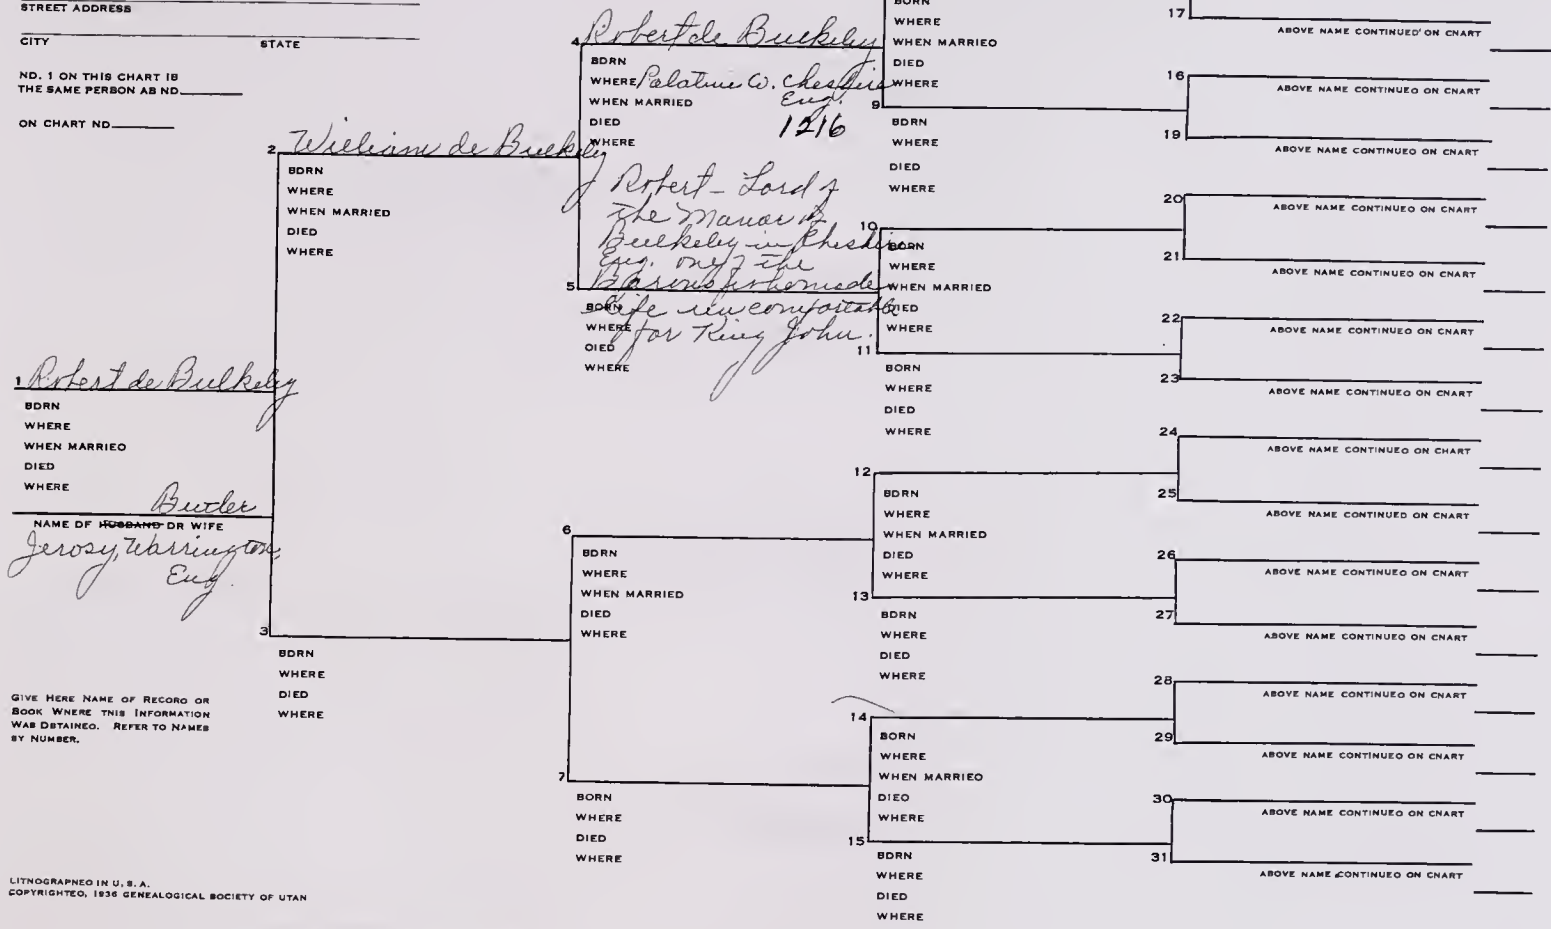 STREET ADDRESS
CITY STATE
NO. 1 ON THIS CHART IS
THE SAME PERSON AS NO.
ON CHART NO.
1 Robert de Bulkeley
BORN
WHERE
WHEN MARRIED
DIED
WHERE
Butler
NAME OF HUSBAND OR WIFE
Warrington,
Eng.
GIVE HERE NAME OF RECORD OR
BOOK WHERE THIS INFORMATION
WAS OBTAINED. REFER TO NAMES
BY NUMBER.
LITHOGRAPHED IN U. S. A.
COPYRIGHTED, 1936 GENEALOGICAL SOCIETY OF UTAH
2 William de Bulkeley
BORN
WHERE
WHEN MARRIED
DIED
WHERE
3
BORN
WHERE
DIED
WHERE
4 Robert de Bulkeley
BORN
WHERE Palatine Co. Cheshire
Eng.
WHEN MARRIED
DIED 1216
WHERE
Robert - Lord of
the Manor of
Bulkeley in Cheshire
Eng. one of the
Barons who made
life uncomfortable
for King John.
5
BORN
WHERE
DIED
WHERE
6
BORN
WHERE
WHEN MARRIED
DIED
WHERE
7
BORN
WHERE
DIED
WHERE
BORN
WHERE
WHEN MARRIED
DIED
WHERE
9
BORN
WHERE
DIED
WHERE
10
BORN
WHERE
WHEN MARRIED
DIED
WHERE
11
BORN
WHERE
DIED
WHERE
12
BORN
WHERE
WHEN MARRIED
DIED
WHERE
13
BORN
WHERE
DIED
WHERE
14
BORN
WHERE
WHEN MARRIED
DIED
WHERE
15
BORN
WHERE
DIED
WHERE
17
ABOVE NAME CONTINUED ON CHART
16
ABOVE NAME CONTINUED ON CHART
19
ABOVE NAME CONTINUED ON CHART
20
ABOVE NAME CONTINUED ON CHART
21
ABOVE NAME CONTINUED ON CHART
22
ABOVE NAME CONTINUED ON CHART
23
ABOVE NAME CONTINUED ON CHART
24
ABOVE NAME CONTINUED ON CHART
25
ABOVE NAME CONTINUED ON CHART
26
ABOVE NAME CONTINUED ON CHART
27
ABOVE NAME CONTINUED ON CHART
28
ABOVE NAME CONTINUED ON CHART
29
ABOVE NAME CONTINUED ON CHART
30
ABOVE NAME CONTINUED ON CHART
31
ABOVE NAME CONTINUED ON CHART